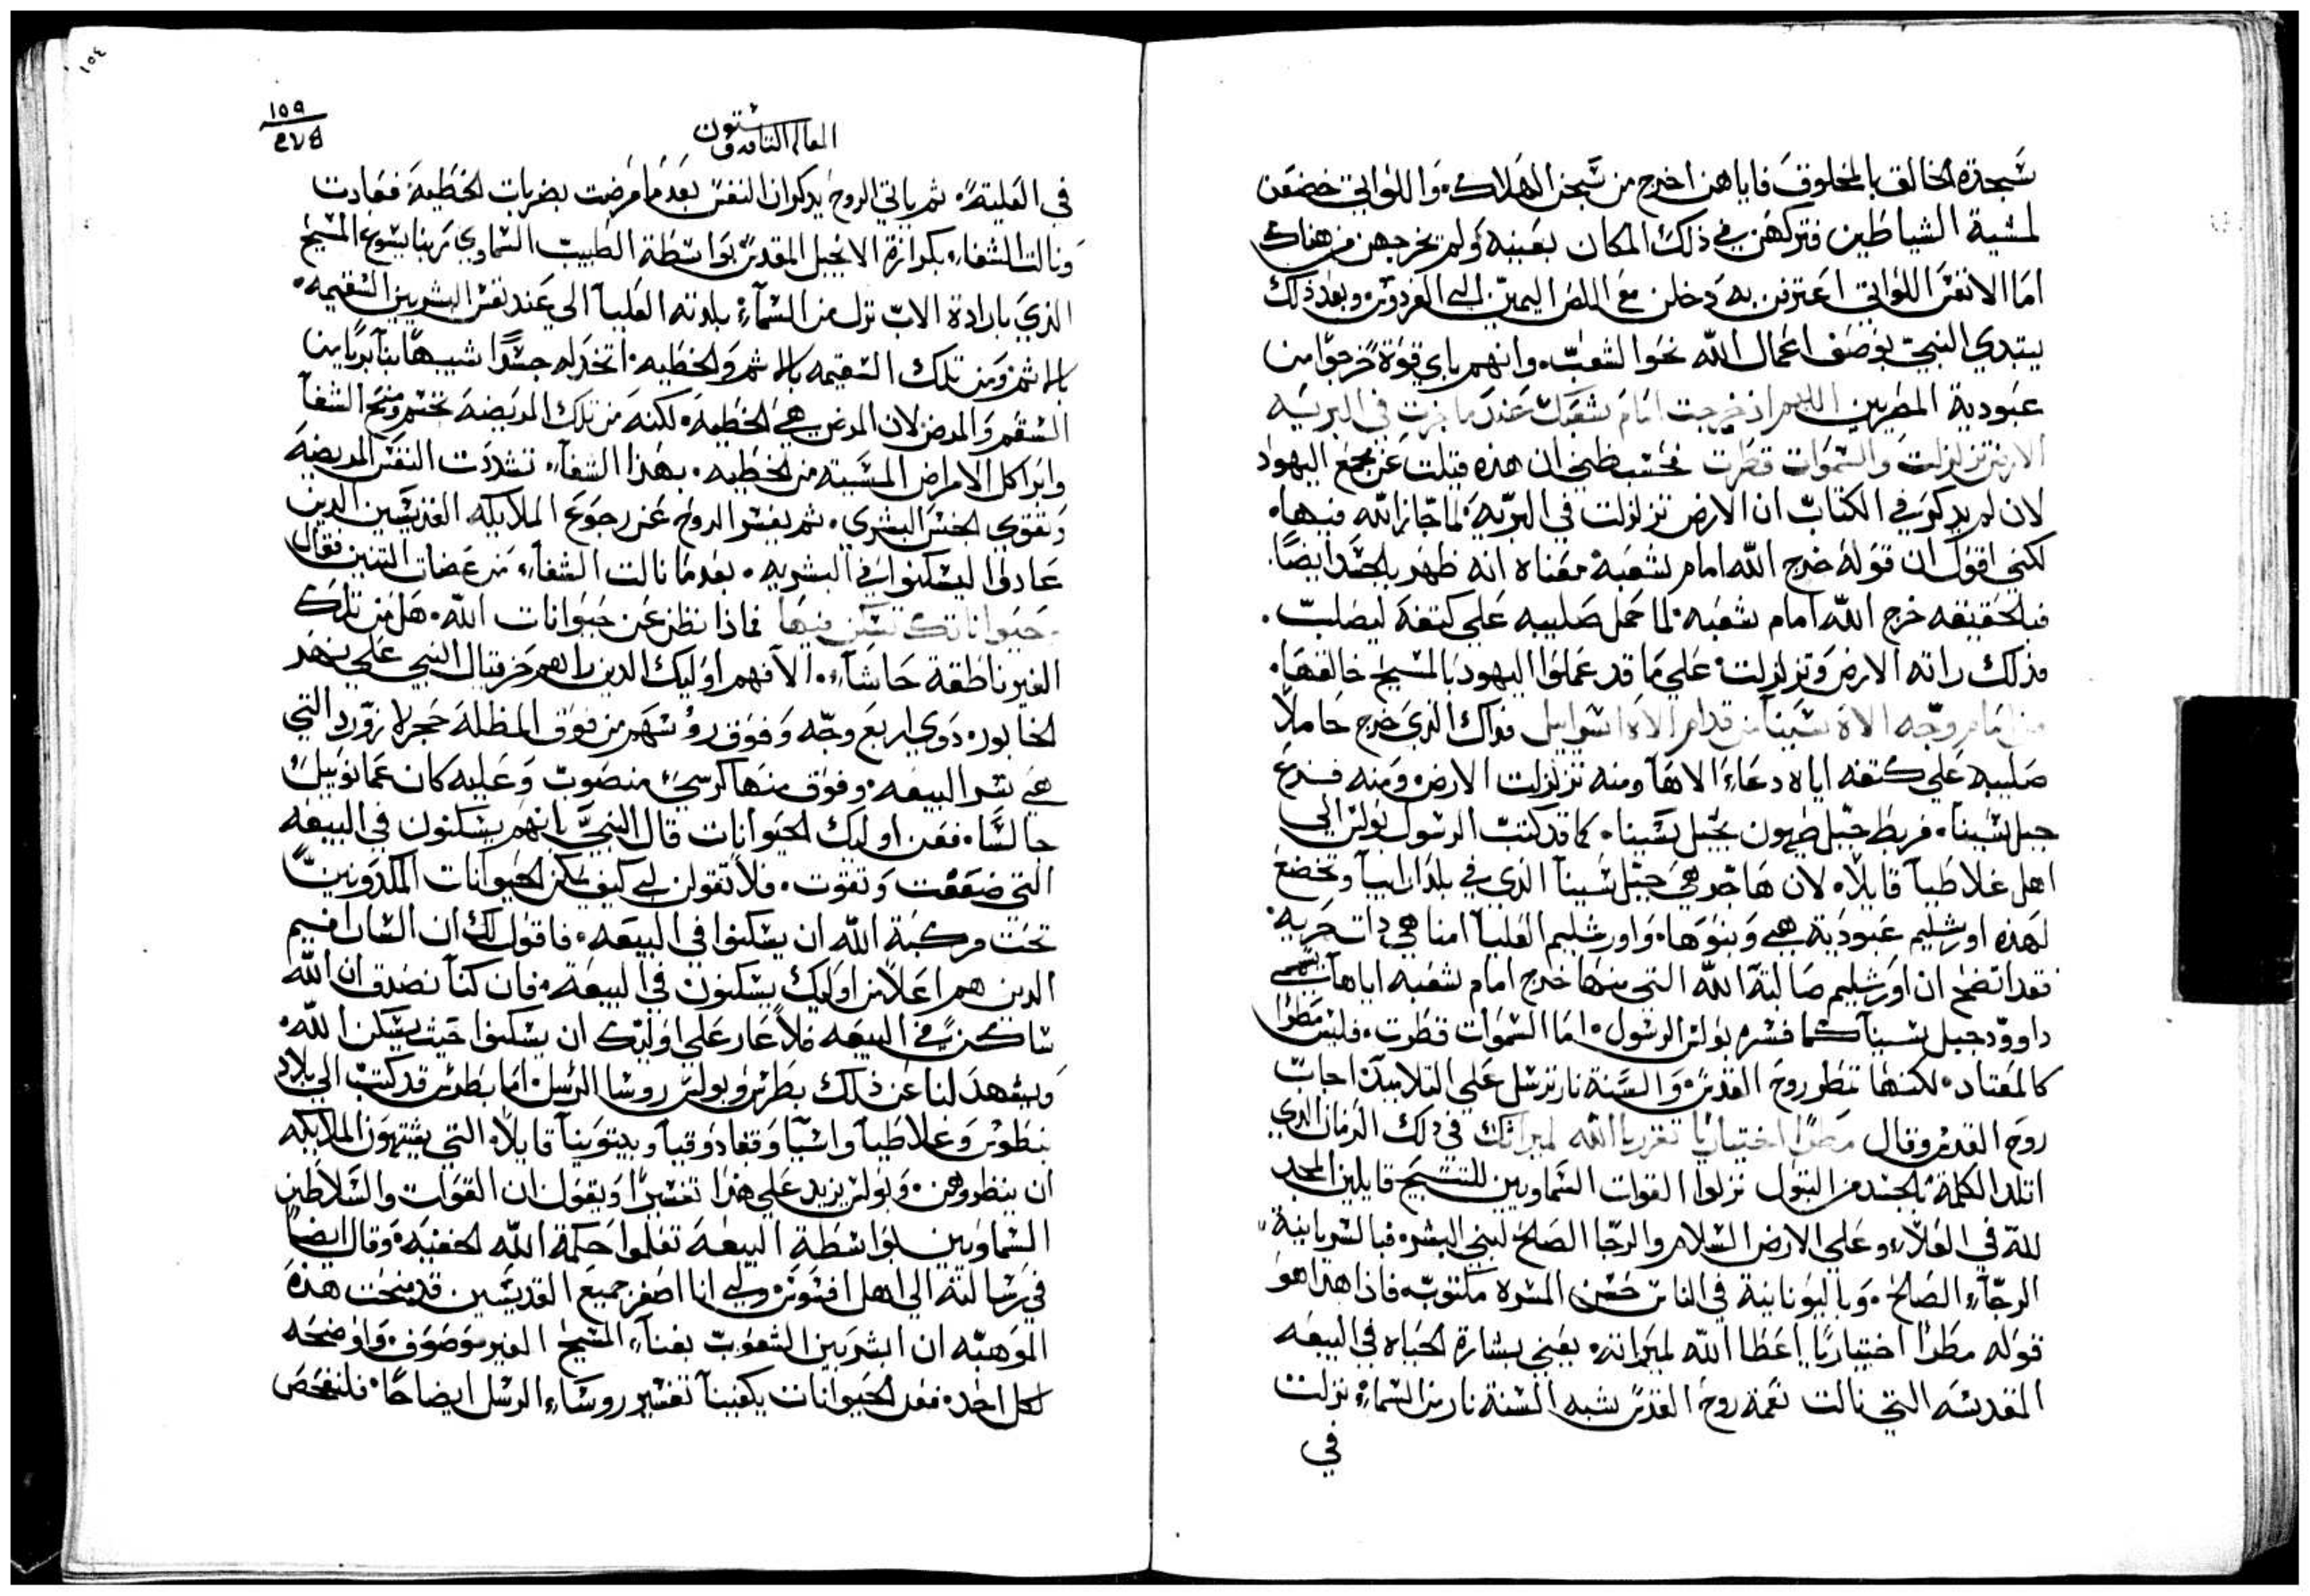 سجدة الخالق بالمخلوق فاياهن اخرج من سجن الهلاك. واللواتي خضعن
لمشية الشياطين فتركهن في ذلك المكان بعينه ولم يخرجهن من هناك
اما الانفس اللواتي اعترفن به دخلن مع اللص اليمين الى الفردوس. وبعد ذلك
يبتدي النبي بوصف اعمال الله نحو الشعب. وانهم باي قوة خرجوا من
عبودية المصريين اللهم اذ خرجت امام شعبك عندما جزت في البريه
الارض تزلزلت والسموات قطرت فحسب ظني ان هذه قيلت عن مجمع اليهود
لان لم يذكر في الكتاب ان الارض تزلزلت في البريه لما جاز الله فيها.
لكني اقول ان قوله خرج الله امام شعبه معناه انه ظهر بالجسد ايضا.
فبالحقيقه خرج الله امام شعبه لما حمل صليبه على كتفه ليصلب.
فذلك راته الارض وتزلزلت على ما قد عملوا اليهود بالمسيح خالقها.
من امام وجه الاه سينا من قدام الاه اسراييل فذاك الذي خرج حاملا
صليبه على كتفه اياه دعاء الاها ومنه تزلزلت الارض ومنه فزع
جبل سينا. فربط جبل صهيون بجبل سينا. كما قد كتب الرسول بولس الى
اهل غلاطيا قايلا. لان هاجر هي جبل سينا الذي في بلد ارابيا وتخضع
لهذه اورشليم عبودية هي وبنوها. واورشليم العليا امنا هي ذات حريه.
فقد اتضح ان اورشليم صالبة الله التي منها خرج امام شعبه اياها يسمي
داوود جبل سينا كما فسره بولس الرسول. اما السموات قطرت. فليس مطرا
كالمعتاد. لكنها تنظر روح القدس والسنة نار ترسل على التلاميذ. احاب
روح القدس وقال مطرا اختياريا تفرز يا الله لميراثك في ذلك الزمان الذي
اتلد الكلمة بالجسد من البتول نزلوا القوات السماويين للتسبيح قايلين المجد
لله في العلاء وعلى الارض السلام والرجا الصالح لبني البشر. فبالسريانية
الرجاء الصالح. وباليونانية في الناس حسن المسرة مكتوب. فاذا هذا هو
قوله مطرا اختياريا اعطا الله لميراثه. يعني بشارة الحياه في البيعه
المقدسه التي نالت نعمة روح القدس شبه السنة نار من السماء نزلت
في
١٥٤
١٥٩
المقاله الثامنه وستون
في العلية. ثم ياتي الروح يذكر ان النفس بعد ما مرضت بضربات الخطيه فعادت
ونالت الشفاء بكرازة الانجيل المقدس بواسطة الطبيب السماوي ربنا يسوع المسيح
الذي بارادة الاب نزل من السماء بلدته العليا الى عند نفس البشريين السقيمه.
بالاثم ومن تلك السقيمه بالاثم والخطيه. اتخذ له جسدا شبيها بنا بريا من
السقم والمرض لان المرض هي الخطيه. لكنه من تلك المريضه تجسم ومنح الشفا
وابرا كل الامراض المسببه من الخطيه. بهذا الشفاء تشددت النفس المريضه
وتقوى الجنس البشري. ثم يفسر الروح عن رجوع الملايكه القديسين الذين
عادوا ليسكنوا في البشريه. بعد ما نالت الشفاء من عضات التنين فقال
حيواناتك تسكن فيها فماذا نظن عن حيوانات الله. هل من تلك
الغير ناطقة حاشاء. الا فهم اوليك الذين راهم حزقيال النبي على نهر
الخابور. ذوي اربع وجه وفوق روسهم من فوق المظلة حجر لازورد التي
هي سر البيعه. وفوق منها كرسي منصوب وعليه كان عمانوييل
جالسا. فعن اوليك الحيوانات قال النبي بانهم يسكنون في البيعه
التي ضعفت وتقوت. فلا تقولن لي كيف يمكن الحيوانات المكدونين
تحت مركبة الله ان يسكنوا في البيعه. فاقول لك ان السارافيم
الذين هم اعلا من اوليك يسكنون في البيعه. فان كنا نصدق ان الله
ساكن في البيعه فلا عار على اوليك ان يسكنوا حيث يسكن الله.
ويشهد لنا عن ذلك بطرس وبولس روسا الرسل. اما بطرس قد كتب الى بلاد
بنطوس وغلاطيا واسيا وقفادوقيا وبيتونيا قايلا. التي يشتهون الملايكه
ان ينظروهن. وبولس يزيد على هذا تفسيرا ويقول ان القوات والسلاطين
السماويين بواسطة البيعه تعلموا حكمة الله الخفيه. وقال ايضا
في رسالته الى اهل افسوس ولي انا اصغر جميع القديسين قد منحت هذه
الموهبه ان ابشر بين الشعوب بغناء المسيح الغير موصوف. واوضحه
لكل احد. فعن الحيوانات يكفينا تفسير روساء الرسل ايضاحا. فلنفحص